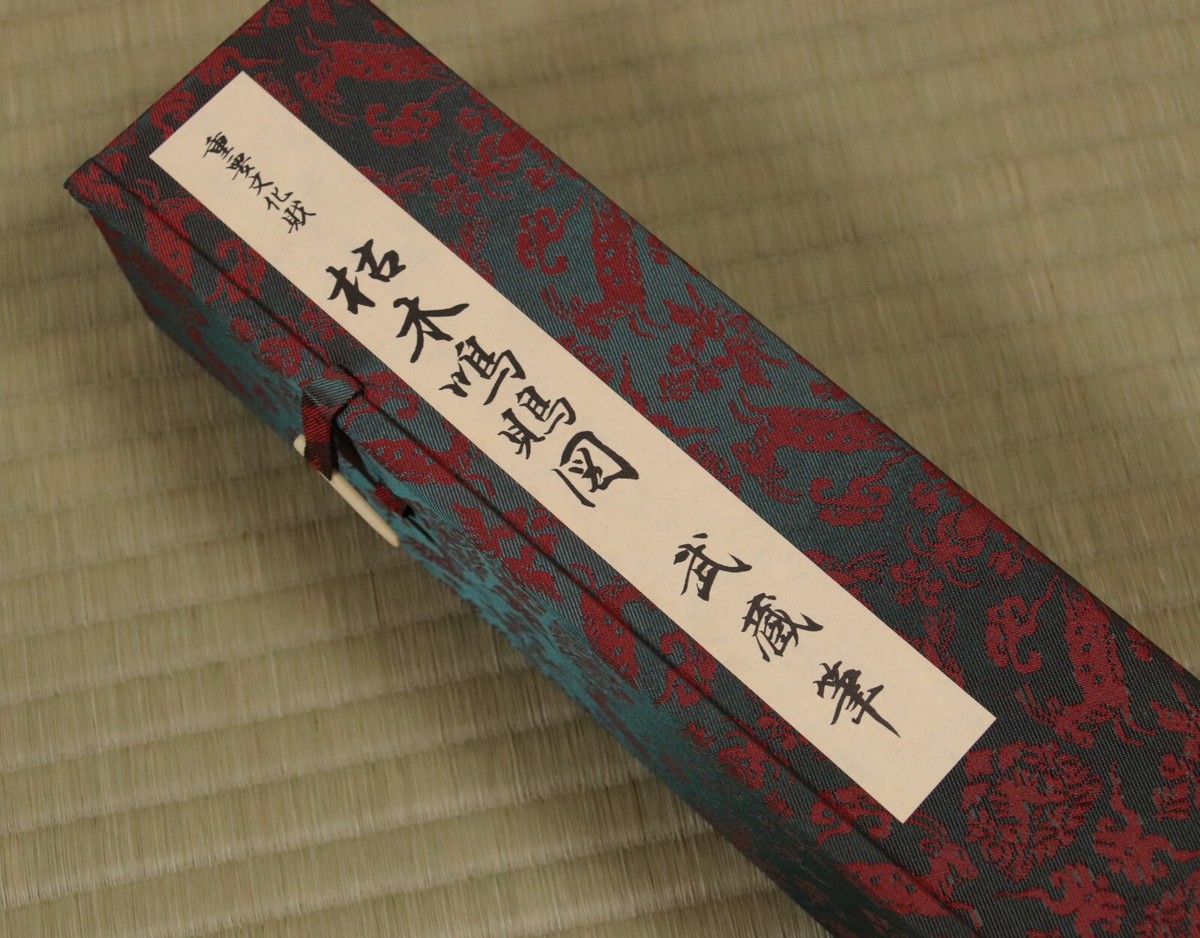 重要文化財 枯木鳴鵙図 武蔵筆